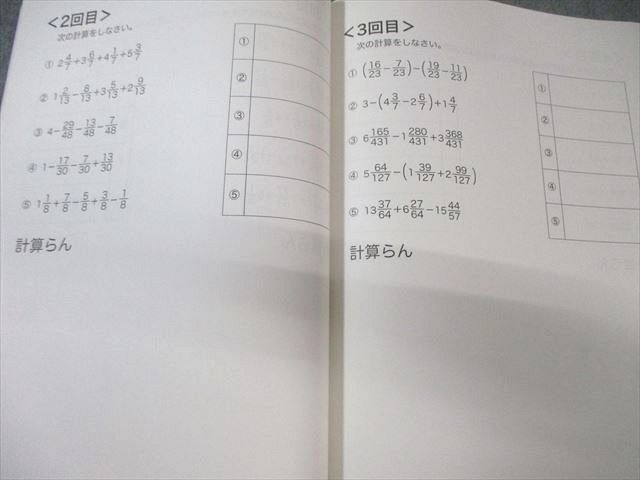 <2回目>
次の計算をしなさい。
① 2 4/7+3 6/7+4 1/7+5 3/7
② 1 2/13−8/13+3 5/13+2 9/13
③ 4−29/48−13/48−7/48
④ 1−17/30−7/30+13/30
⑤ 1 1/8+7/8−5/8+3/8−1/8
計算らん
①
②
③
④
⑤
<3回目>
次の計算をしなさい。
① (16/23−7/23)−(19/23−11/23)
② 3−(4 3/7−2 6/7)+1 4/7
③ 6 165/431−1 280/431+3 368/431
④ 5 64/127−(1 39/127+2 99/127)
⑤ 13 37/64+6 27/64−15 44/57
計算らん
①
②
③
④
⑤